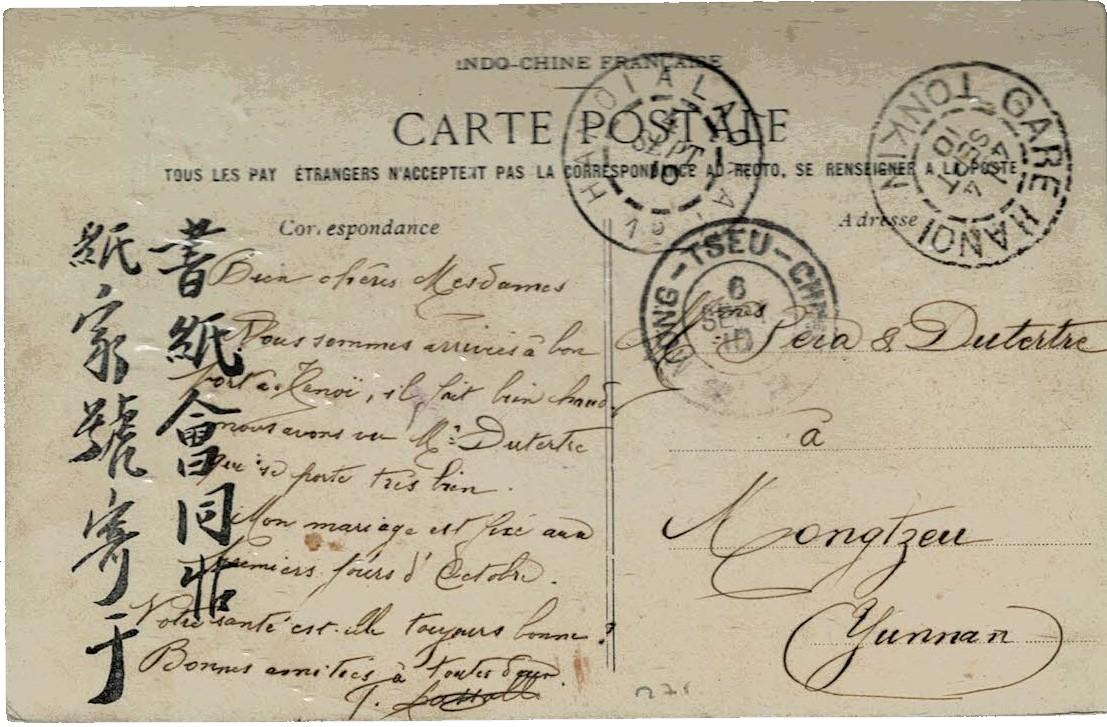 INDO-CHINE FRANÇAISE
CARTE POSTALE
TOUS LES PAY ÉTRANGERS N'ACCEPTENT PAS LA CORRESPONDANCE AU RECTO, SE RENSEIGNER A LA POSTE
Correspondance
Adresse
Bien chères Mesdames
Nous sommes arrivés à bon
port à Hanoï, il fait bien chaud,
nous avons vu Mr Dutertre
qui se porte très bien.
Mon mariage est fixé aux
premiers jours d'Octobre.
Votre santé est-elle toujours bonne?
Bonnes amitiés à toutes deux.
Mmes Pera & Dutertre
à
Mongtzeu
Yunnan
書紙會同
紙家號寄于
HANOI A LAO-KAY
SEPT
10
GARE HANOI
TONKIN
4 SEPT
10
MONG-TSEU-CHINE
6
SEPT
10